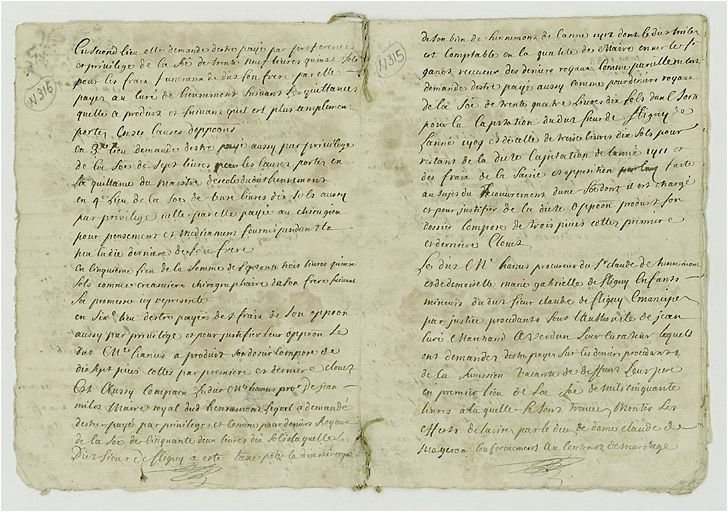 N 316
En second lieu elle demande destre payé par preference
et privilege de la Soẽ de trente neuf livres quinze Sols
pour les fraix funeraux de dud son frere par elle
payez au curé de hennemont Suivant Le quittances
quelle a produit et Suivant quil est plus amplement
portez Causes d'oppoõn
En 3e lieu demande destre payé aussy par privilege
de la Soẽ de Sept livres pour les causes portez en
La quittance du maistre descole dud hennemont
en 4e lieu de la Soẽ de livres dix Sols aussy
par privilege elle par elle payé au chirurgien
pour pensement et medicament fournis pendant la
maladie derniere de Son frere
En cinquieme lieu de la Somme de Septante trois livres quinze
Sols comme creanciere chirographaire de son frere suivant
Sa promesse cy representé
en Sixe lieu destre payée des fraix de son oppoõn
aussy par privilege et pour justifier Son oppoõn Le
dit Me hanus a produit Son dossier composé de
dix Sept pieces cottez par premiere et derniere clouet
Est Aussy Comparu Led Me hanus proc de jean
milot Maire royal dud hennemont lequel a demandé
destre payé par privilege et Comme pour deniers Royaux
de la Soẽ de Cinquante deux livres dix Sols de laquelle Le
Dit Sieur de Fligny a esté taxé pour le dixieme royal
N 315
de son bien de hennemont de Lannée 1712 dont led milot
est Comptable en la qualité de Maire envers le Sr
receveur des deniers royaux Comme pareillement
demande destre payé aussy comme pour deniers royaux
de la Soẽ de trente quatre Livres dix Sols dun C
pour la Capitation dudit Sieur de Fligny de
Lannée 1709 et dicelle de treize livres dix Sols pour
restant de la dicte Capitation de Lannée 1711 et
des fraix de la Saisie et opposition faite
au Sujet du Recouvrement dune Sond il est chargé
et pour justifier de la dicte oppoõn produit Son
dossier Composé de trois pieces cottez premiere
et derniere Clouet
Le dit Me hanus procureur du Sr claude de hennemont
et de demoiselle marie gabrielle de Fligny Enfants
mineurs du dit Sieur claude de Fligny Emancipez
par justice procedants Sous L'authorité de jean
curé Marchand a Verdun Leur Curateur lequels
ont demandez destre payez Sur les deniers procedants
de la Succession vacante de deffunt Leur pere
en premier lieu de La Soẽ de mil cinquante
livres a laquelle Se Sont trouvez Monter les
effects delaissez par le decu de dame claude de
Conformement au Contract de mariage